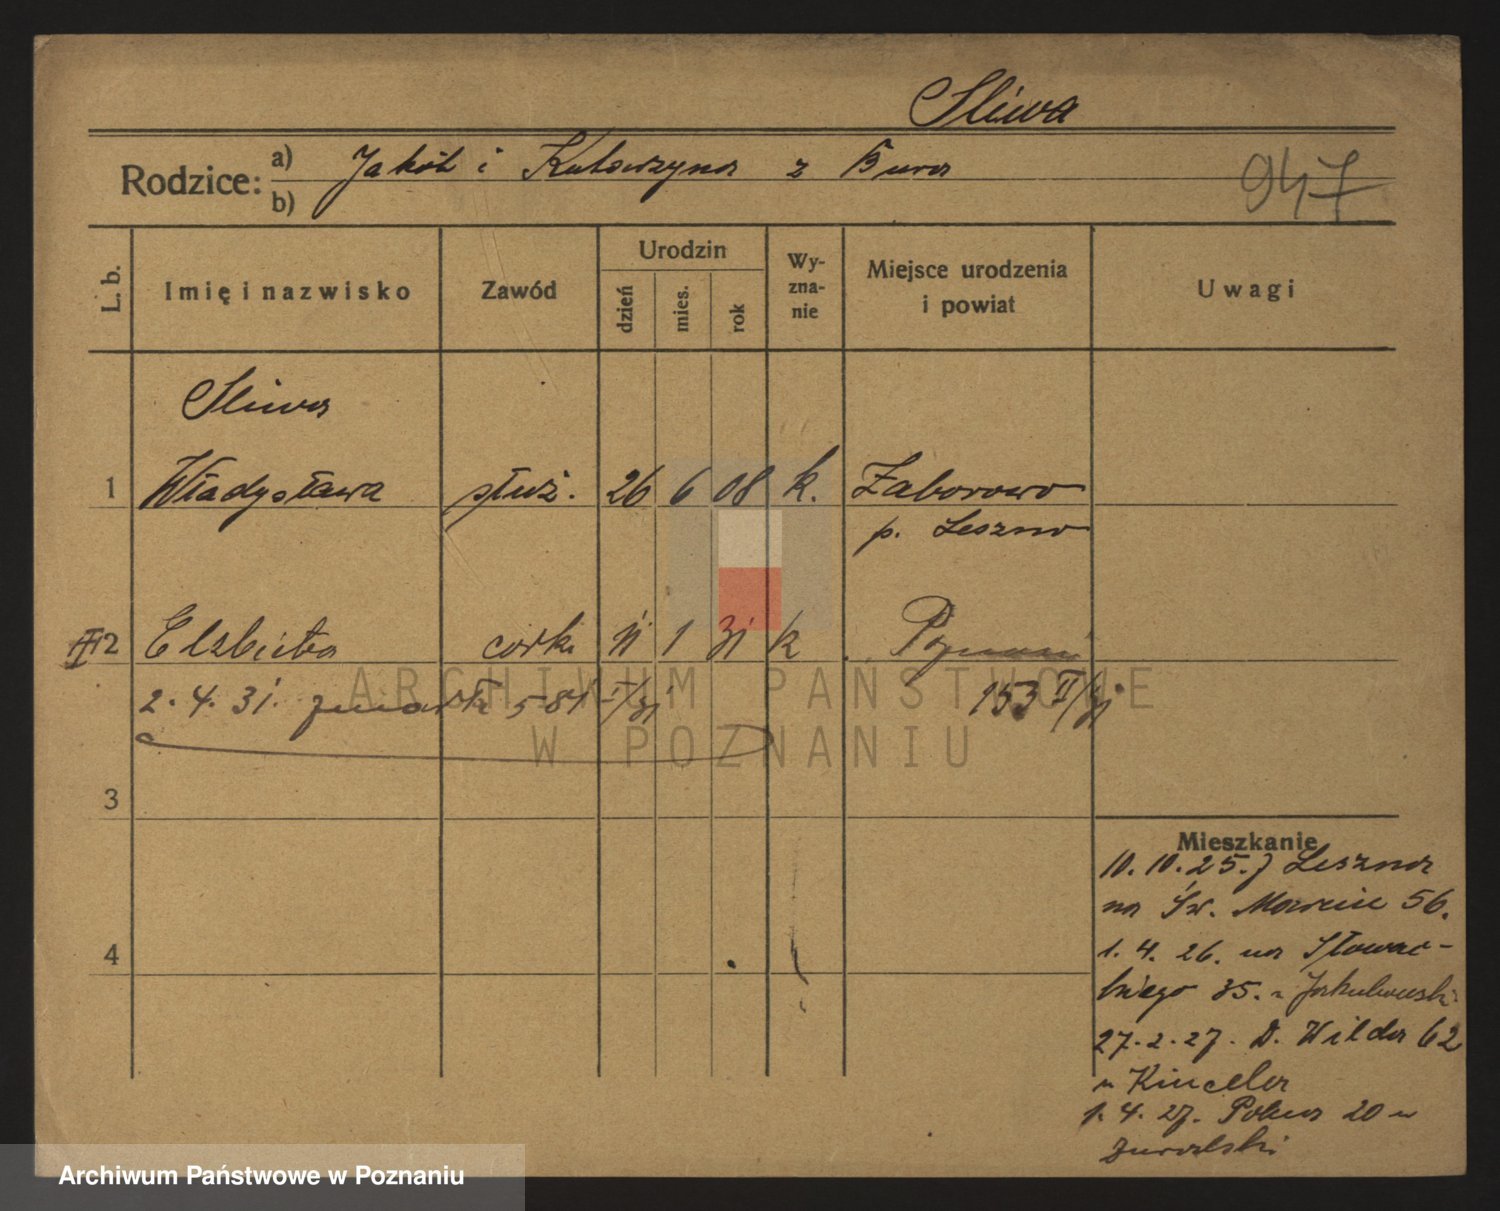 Sliwa
Rodzice: a) Jakób i Katarzyna z Bura
b)
947
L. b.
Imię i nazwisko
Zawód
Urodzin
dzień
mies.
rok
Wy-
zna-
nie
Miejsce urodzenia
i powiat
Uwagi
Sliwa
1 Władysława służ. 26 6 08 k. Zaborowo
p. Leszno
2 Elzbieta córka 11 1 31 k Poznań
2. 4. 31. zmarła 581 I/31 153 II/31
ARCHIWUM PAŃSTWOWE
W POZNANIU
3
4
Mieszkanie
10. 10. 25. z Leszna
na Św. Marcin 56.
1. 4. 26. na Słowac-
kiego 35. u Jakubowski
27. 2. 27. D. Wilda 62
u Kincela
1. 4. 27. 20 u
Archiwum Państwowe w Poznaniu